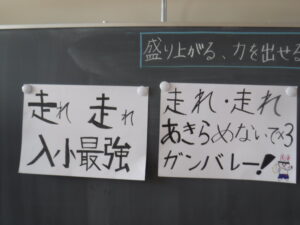 盛り上がる、力を出せる
走れ 走れ
入小最強
走れ・走れ
あきらめないで×3
ガンバレー!